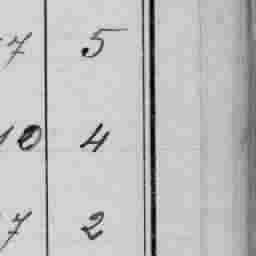 7 5
10 4
7 2